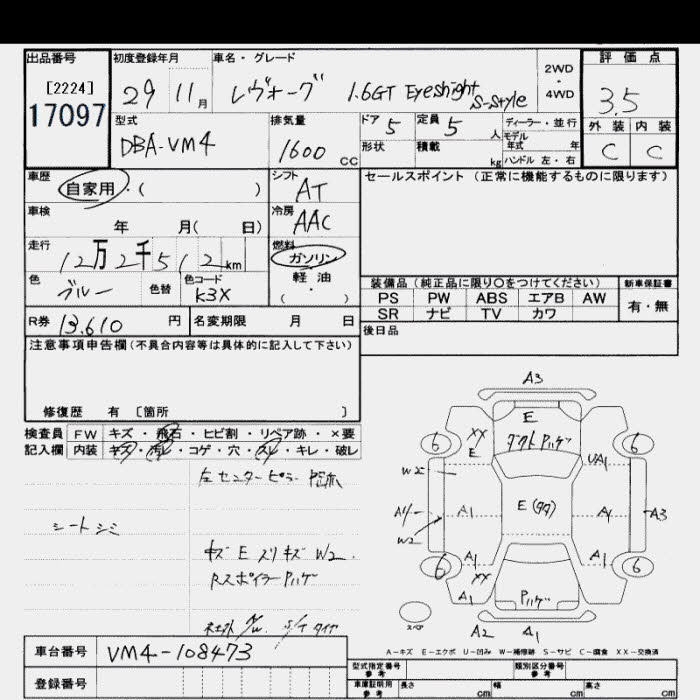 出品番号
[2224]
17097
初度登録年月
29 11月
車名・グレード
レヴォーグ 1.6GT Eyesight S-style
2WD
・
4WD
評価点
3.5
外装 内装
C C
型式
DBA-VM4
排気量
1600 cc
ドア 5
定員 5 人
形状
積載 kg
ディーラー・並行
モデル
年式 年
ハンドル 左・右
車歴
自家用・( )
シフト
AT
車検
年 月( 日)
冷房
AAC
走行
12万2千512km
燃料
ガソリン
軽油
・
( )
色
ブルー
色替
色コード
K3X
セールスポイント(正常に機能するものに限ります)
装備品(純正品に限り○をつけてください)
PS PW ABS エアB AW
SR ナビ TV カワ
新車保証書
有・無
R券 13,610 円
名変期限 月 日
後日品
注意事項申告欄(不具合内容等は具体的に記入して下さい)
修復歴 有 〔箇所 〕
検査員 FW キズ・飛石・ヒビ割・リペア跡・×要
記入欄 内装 キズ・汚レ・コゲ・穴・スレ・キレ・破レ
左センターピラー
シートシミ
キズ E スリキズ W2
Rスポイラー Pハゲ
社外 A/W S/T タイヤ
A3
E
ダクト Pハゲ
6 XX E 6
W2 UA1
E(タタ)
A1 A1 A3
W2
A1 A1
6 XX 6
A1
Pハゲ
スペア
A2 A1
A－キズ E－エクボ U－凹み W－補修跡 S－サビ C－腐食 XX－交換済
車台番号 VM4-108473
登録番号
型式指定番号
参考
類別区分番号
参考
車庫証明用
参考
長さ cm 幅 cm 高さ cm